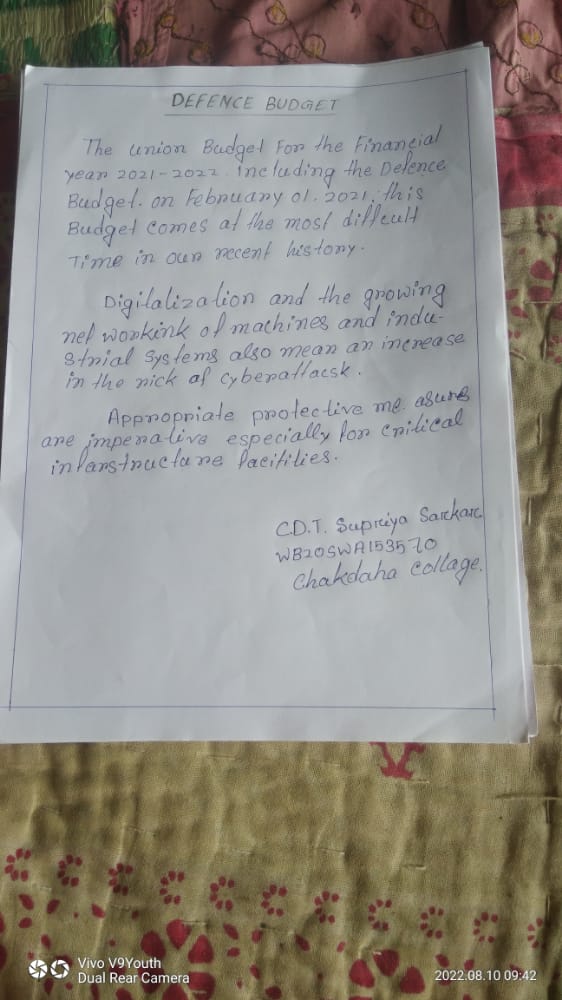 DEFENCE BUDGET
The union Budget For the Financial
year 2021-2022. Including the Defence
Budget. on February 01. 2021. this
Budget comes at the most difficult
Time in our recent history.
Digitalization and the growing
net workink of machines and indu-
strial systems also mean an increase
in the rick of cyberattacsk.
Appropriate protective me asures
are imperative especially for critical
infarstructure facitities.
C.D.T. Supriya Sarkar
WB20SWA153570
Chakdaha Collage.
Vivo V9Youth
Dual Rear Camera
2022.08.10 09:42